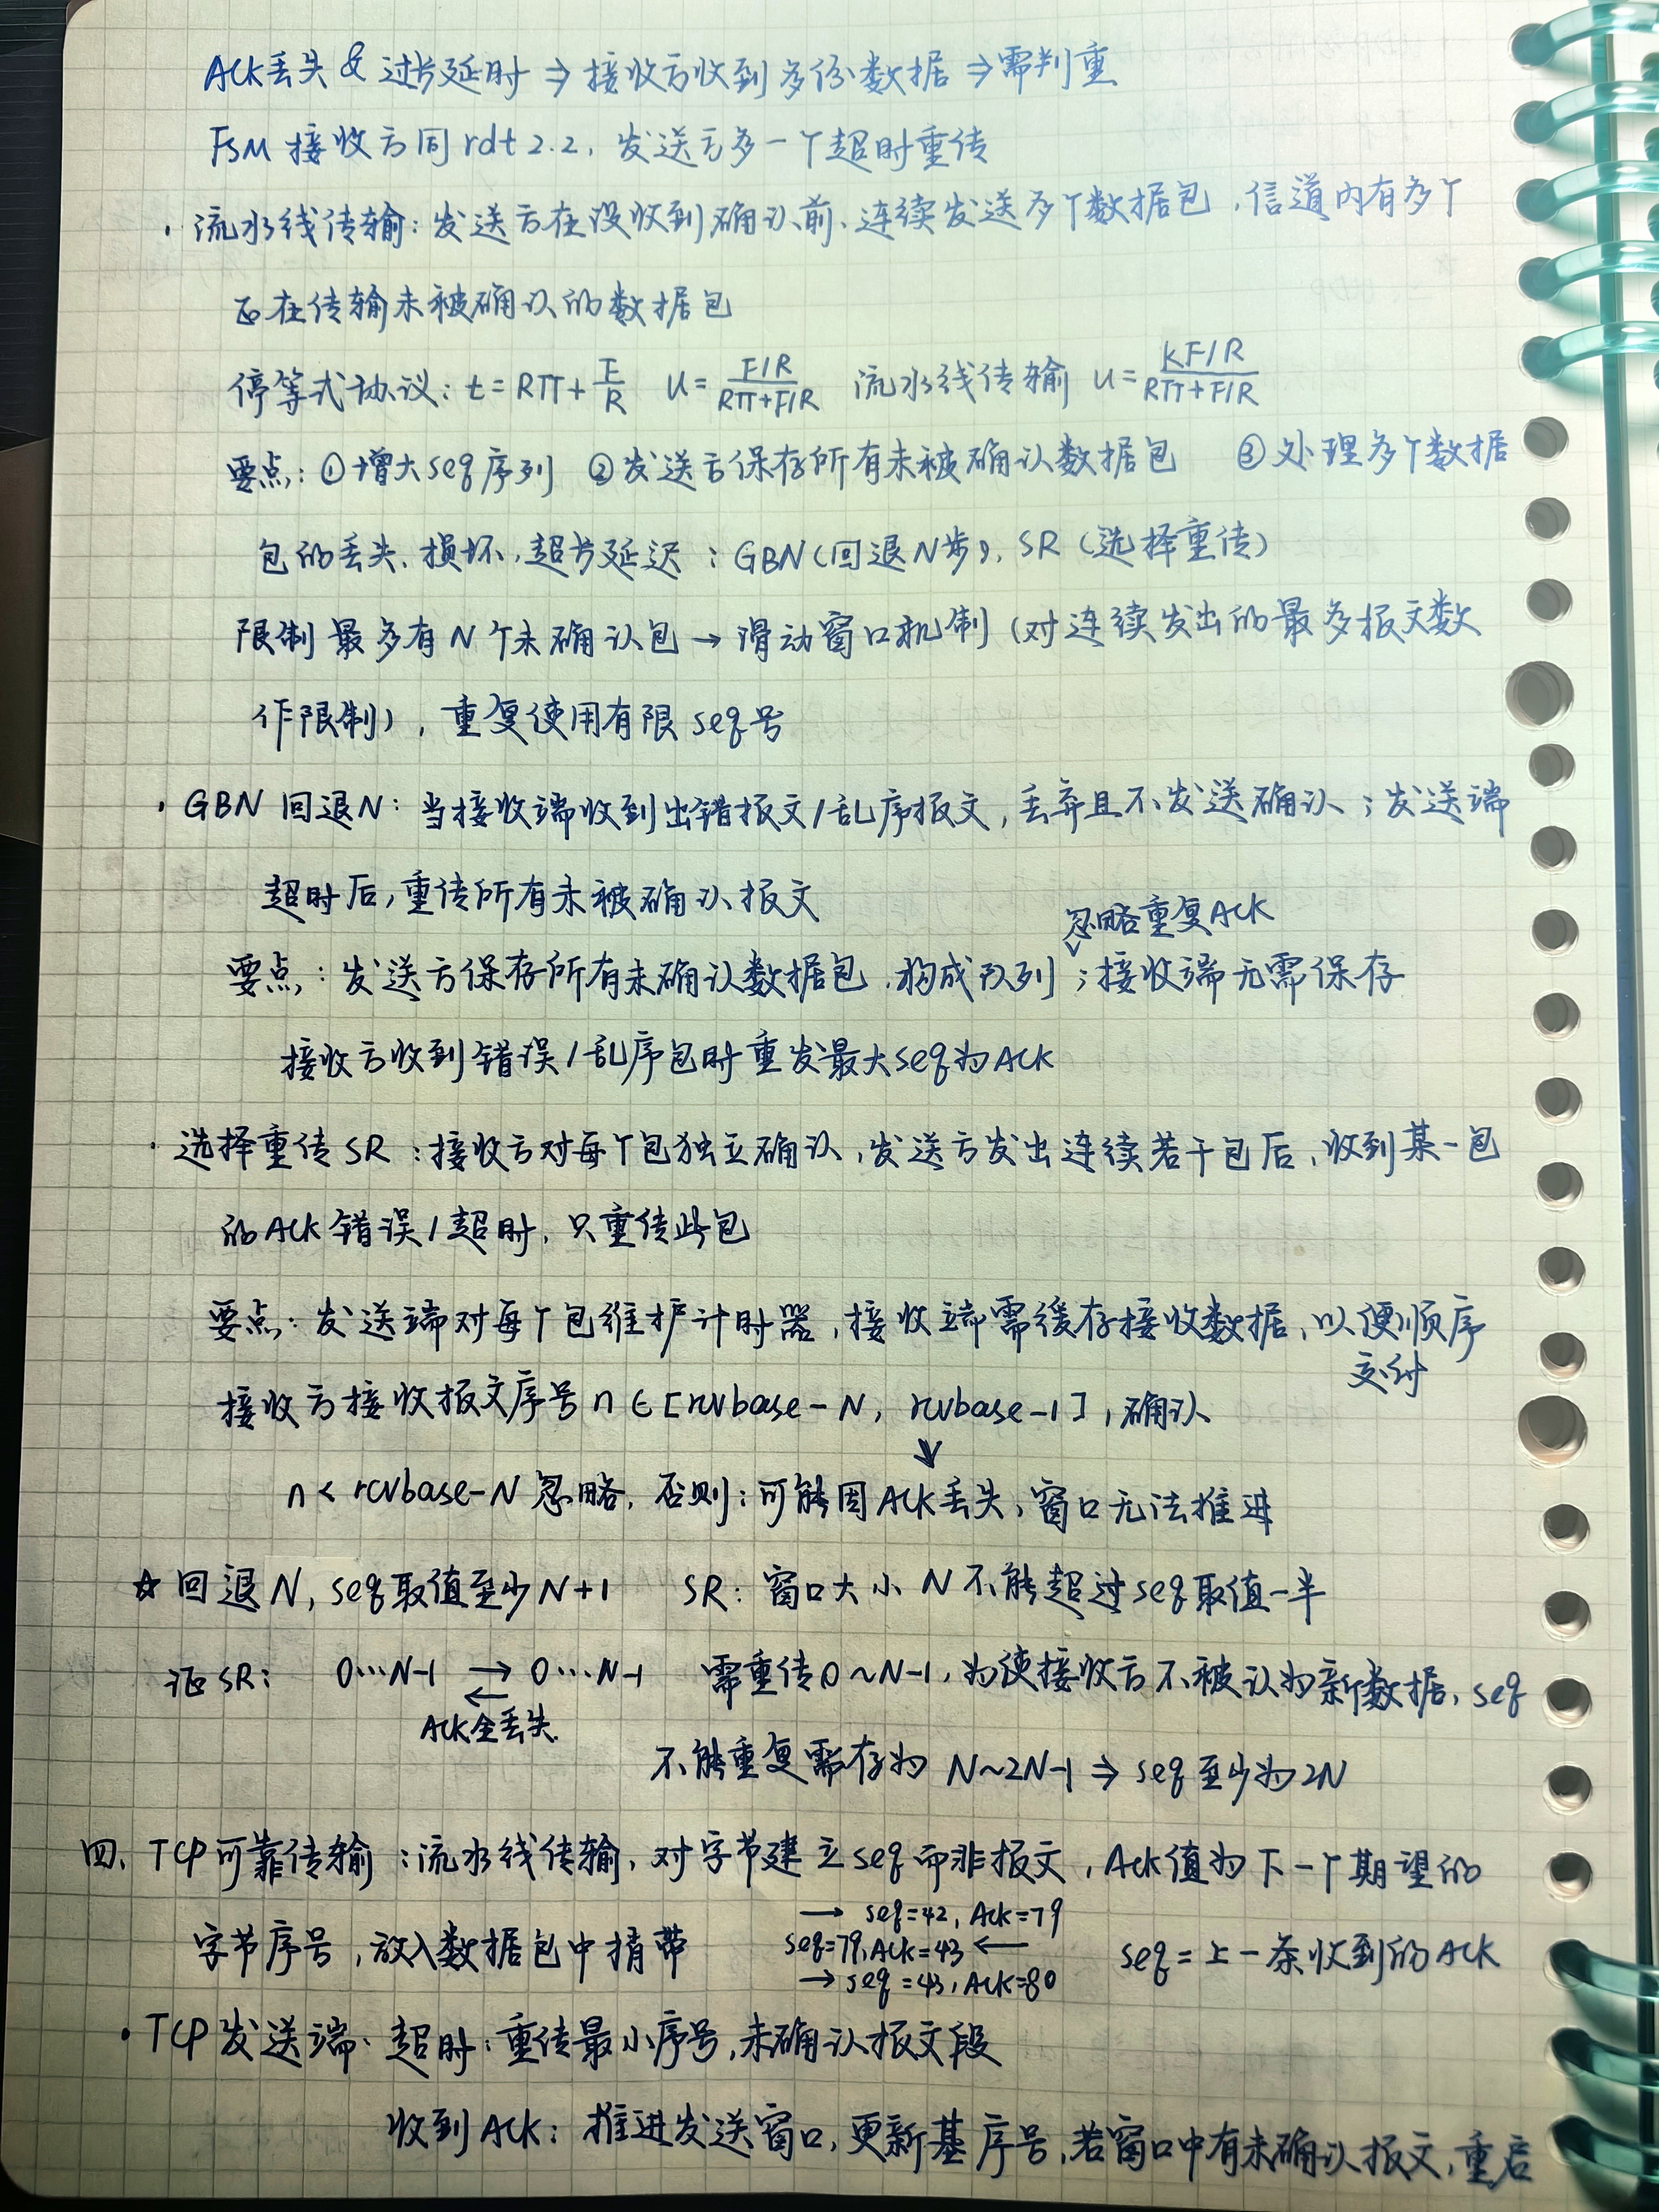 ACK丢失 & 过长延时 ⇒ 接收方收到多份数据 ⇒ 需判重
FSM 接收方同 rdt 2.2, 发送方多一个超时重传
· 流水线传输: 发送方在没收到确认前、连续发送多个数据包, 信道内有多个
正在传输未被确认的数据包
停等式协议: t = RTT + F/R u = (F/R)/(RTT+F/R) 流水线传输 u = (KF/R)/(RTT+F/R)
要点: ①增大seq序列 ②发送方保存所有未被确认数据包 ③处理多个数据
包的丢失、损坏、超长延迟: GBN(回退N步), SR (选择重传)
限制最多有N个未确认包 → 滑动窗口机制 (对连续发出的最多报文数
作限制), 重复使用有限 seq号
· GBN 回退N: 当接收端收到出错报文/乱序报文, 丢弃且不发送确认; 发送端
超时后, 重传所有未被确认报文
忽略重复ACK
要点: 发送方保存所有未确认数据包, 构成队列; 接收端无需保存
接收方收到错误/乱序包时重发最大seq为ACK
· 选择重传 SR: 接收方对每个包独立确认, 发送方发出连续若干包后, 收到某一包
的ACK错误/超时, 只重传此包
要点: 发送端对每个包维护计时器, 接收端需缓存接收数据, 以便顺序
交付
接收方接收报文序号 n∈[rcvbase-N, rcvbase-1], 确认
↓
n < rcvbase-N 忽略, 否则: 可能因ACK丢失, 窗口无法推进
☆ 回退N, seq取值至少N+1 SR: 窗口大小N不能超过seq取值一半
证SR: 0…N-1 → 0…N-1 需重传0~N-1, 为使接收方不被认为新数据, seq
←
ACK全丢失.
不能重复需存为 N~2N-1 ⇒ seq至少为2N
四、TCP可靠传输: 流水线传输, 对字节建立seq而非报文, Ack值为下一个期望的
→ seq=42, Ack=79
字节序号, 放入数据包中捎带 seq=79, ACK=43 ← seq = 上一条收到的ACK
→ seq=43, ACK=80
· TCP发送端· 超时: 重传最小序号, 未确认报文段
收到ACK: 推进发送窗口, 更新基序号, 若窗口中有未确认报文, 重启